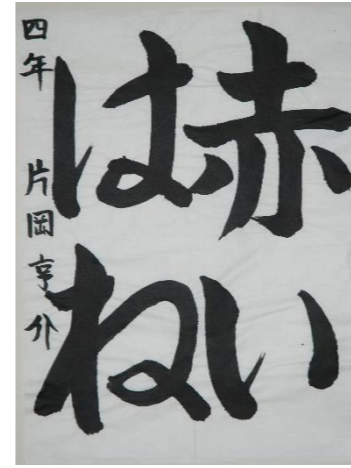 赤い
はね
四年 片岡亨介